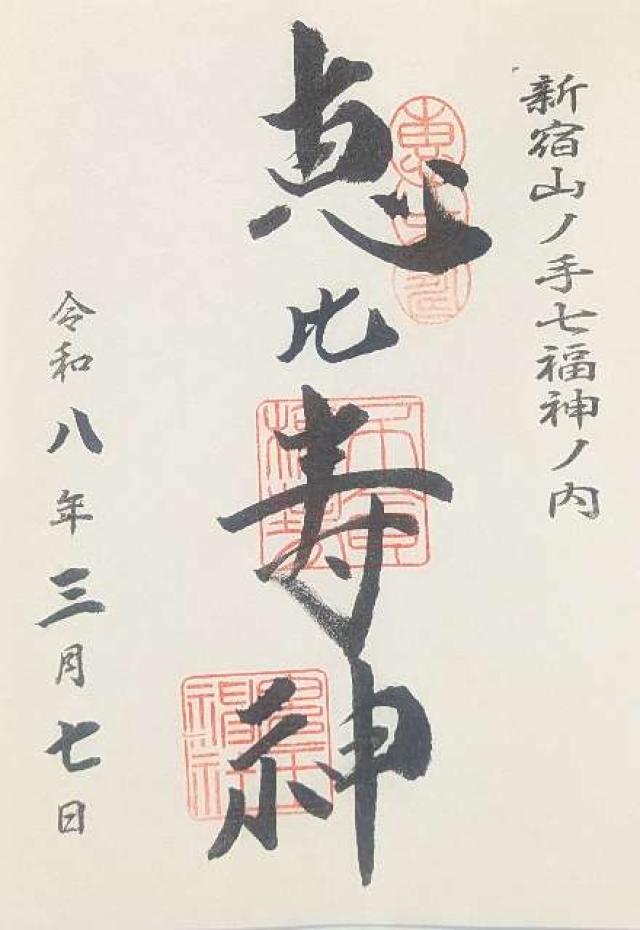 新宿山ノ手七福神ノ内
恵比寿神
令和八年三月七日